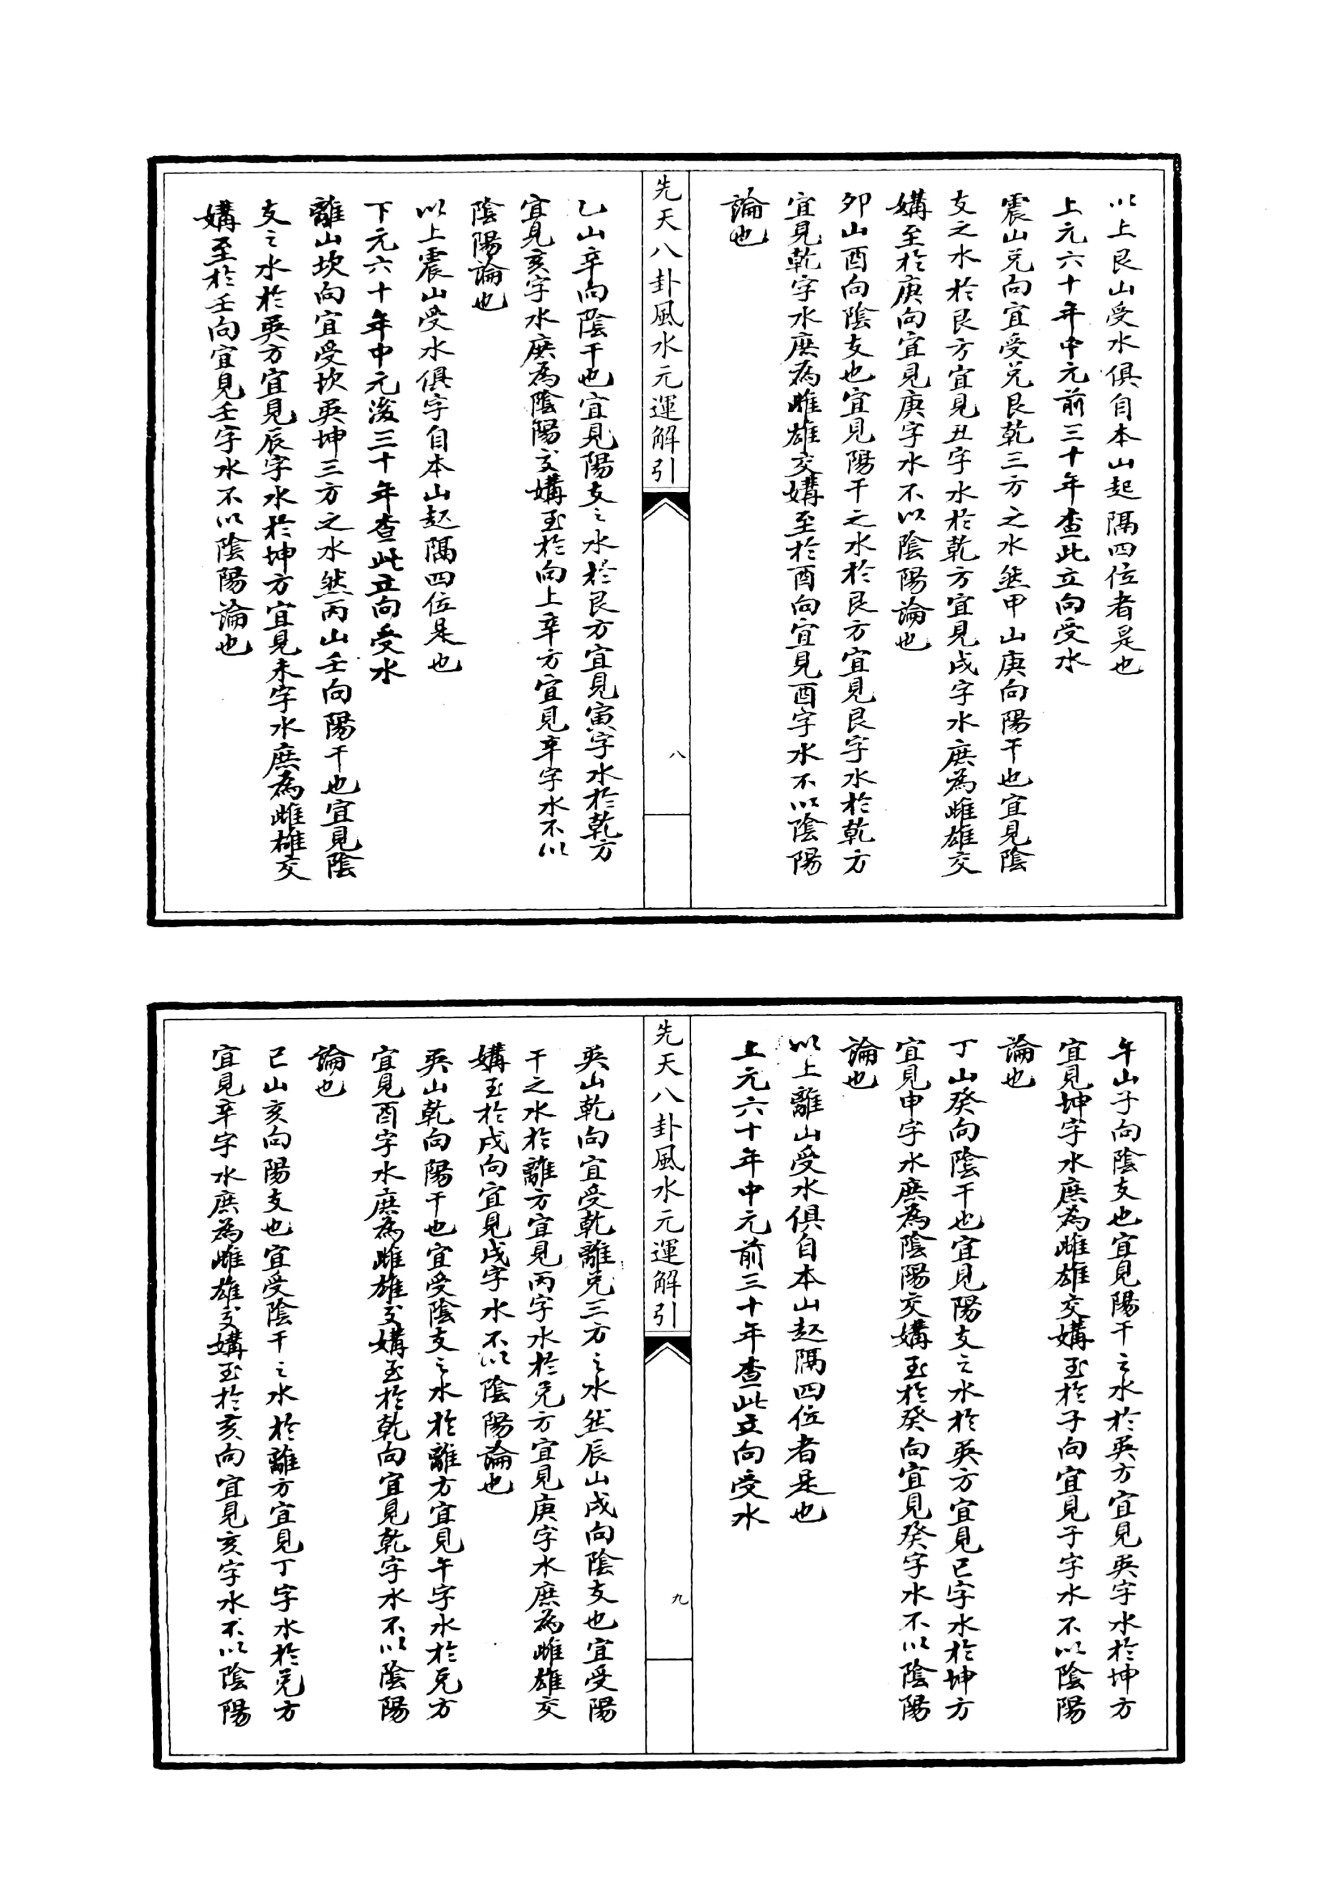 以上艮山受水俱自本山起隔四位者是也
上元六十年中元前三十年查此立向受水
震山兌向宜受兌艮乾三方之水然甲山庚向陽干也宜見陰
支之水於艮方宜見丑字水於乾方宜見戌字水庶為雌雄交
媾至於庚向宜見庚字水不以陰陽論也
卯山酉向陰支也宜見陽干之水於艮方宜見艮字水於乾方
宜見乾字水庶為雌雄交媾至於酉向宜見酉字水不以陰陽
論也
先天八卦風水元運解引
八
乙山辛向陰干也宜見陽支之水於艮方宜見寅字水於乾方
宜見亥字水庶為陰陽交媾至於向上辛方宜見辛字水不以
陰陽論也
以上震山受水俱字自本山起隔四位是也
下元六十年中元後三十年查此立向受水
離山坎向宜受坎巽坤三方之水然丙山壬向陽干也宜見陰
支之水於巽方宜見辰字水於坤方宜見未字水庶為雌雄交
媾至於壬向宜見壬字水不以陰陽論也
午山子向陰支也宜見陽干之水於巽方宜見巽字水於坤方
宜見坤字水庶為雌雄交媾至於子向宜見子字水不以陰陽
論也
丁山癸向陰干也宜見陽支之水於巽方宜見巳字水於坤方
宜見申字水庶為陰陽交媾至於癸向宜見癸字水不以陰陽
論也
以上離山受水俱自本山起隔四位者是也
上元六十年中元前三十年查此立向受水
先天八卦風水元運解引
九
巽山乾向宜受乾離兌三方之水然辰山戌向陰支也宜受陽
干之水於離方宜見丙字水於兌方宜見庚字水庶為雌雄交
媾至於戌向宜見戌字水不以陰陽論也
巽山乾向陽干也宜受陰支之水於離方宜見午字水於兌方
宜見酉字水庶為雌雄交媾至於乾向宜見乾字水不以陰陽
論也
巳山亥向陽支也宜受陰干之水於離方宜見丁字水於兌方
宜見辛字水庶為雌雄交媾至於亥向宜見亥字水不以陰陽